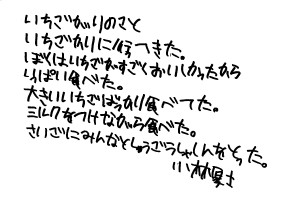 いちごがりのさと
いちごがりに行つきた。
ぼくはいちごがすごくおいしかったから
いっぱい食べた。
大きいいちごばっかり食べてた。
ミルクをつけながら食べた。
さいごにみんなとしゅうごうしゃしんをとった。
小林